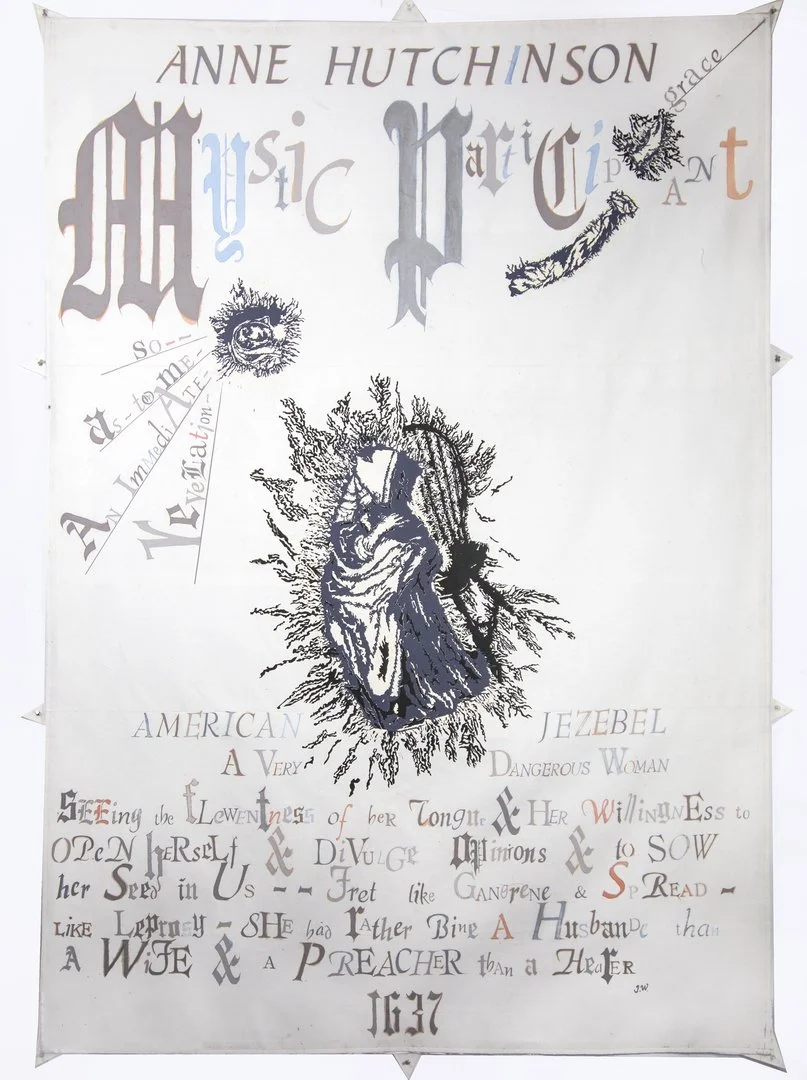 ANNE HUTCHINSON
grace
MystiC PartiCipANt
SO--
as--to me-
An ImmediATE-
reveLation-
AMERICAN JEZEBEL
A VERY DANGEROUS WOMAN
SEEing the fLewentness of heR Tongue & HER WillingnEss to
OPeN hERseLf & DiVuLGe Opinions & to SOW
her Seed in Us -- Fret like Gangrene & SpREAD -
LIKE Leprosy - SHE had rather Bine A Husbande than
A WiFE & A PREACHER than a HeaRER
J.W
1637